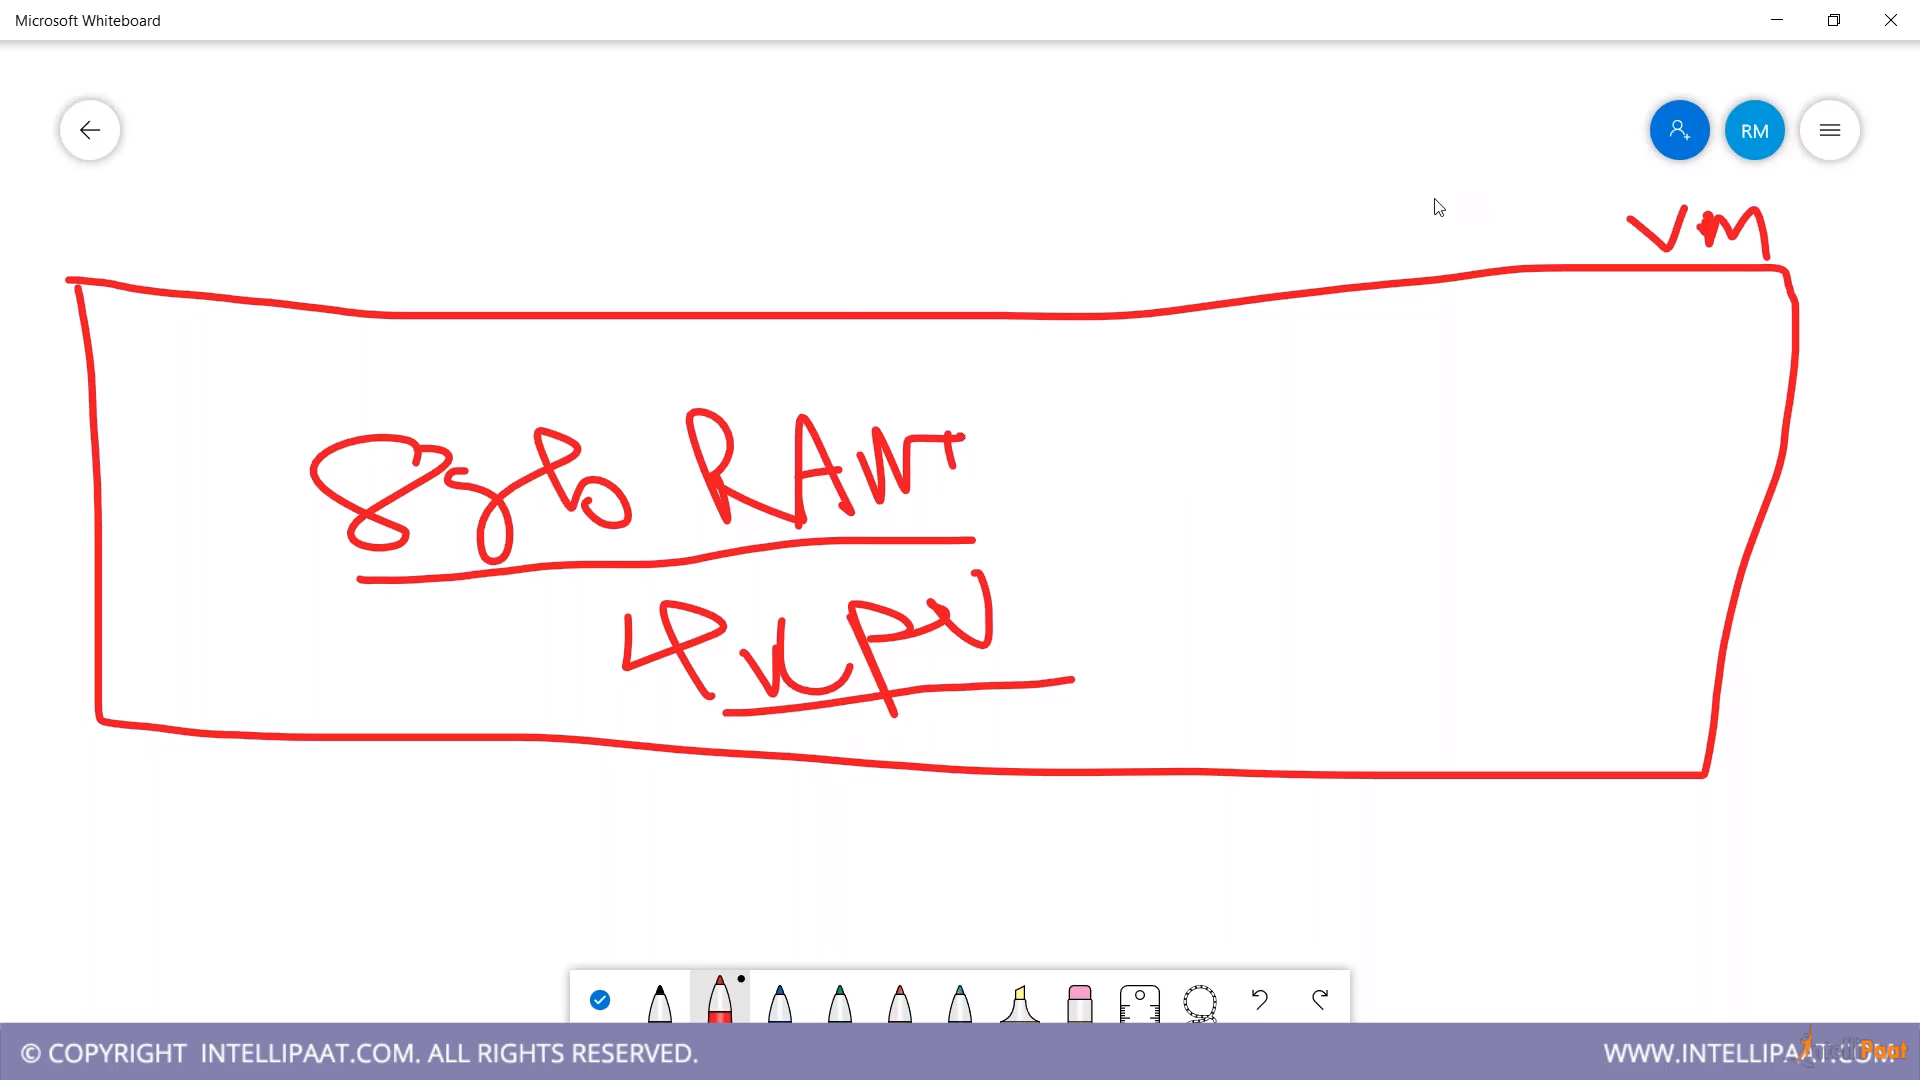 Microsoft Whiteboard
RM
VM
8gb RAM
4vcpu
© COPYRIGHT INTELLIPAAT.COM. ALL RIGHTS RESERVED.
WWW.INTELLIPAAT.COM
IntelliPaat